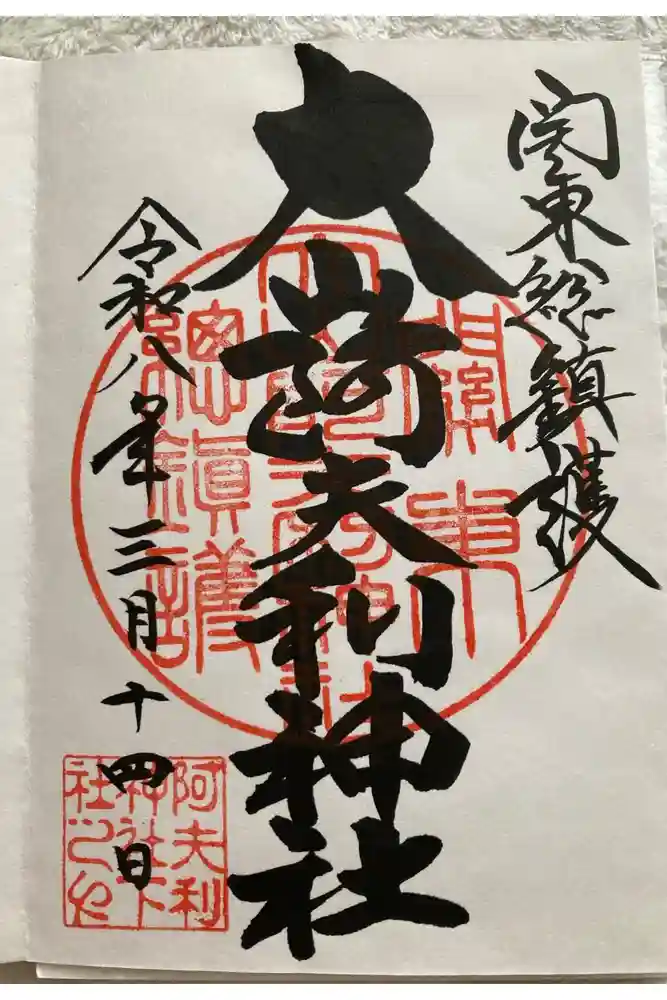 関東総鎮護
大山阿夫利神社
令和八年三月十四日
關東
總鎮護
阿夫利
神社下
社之印